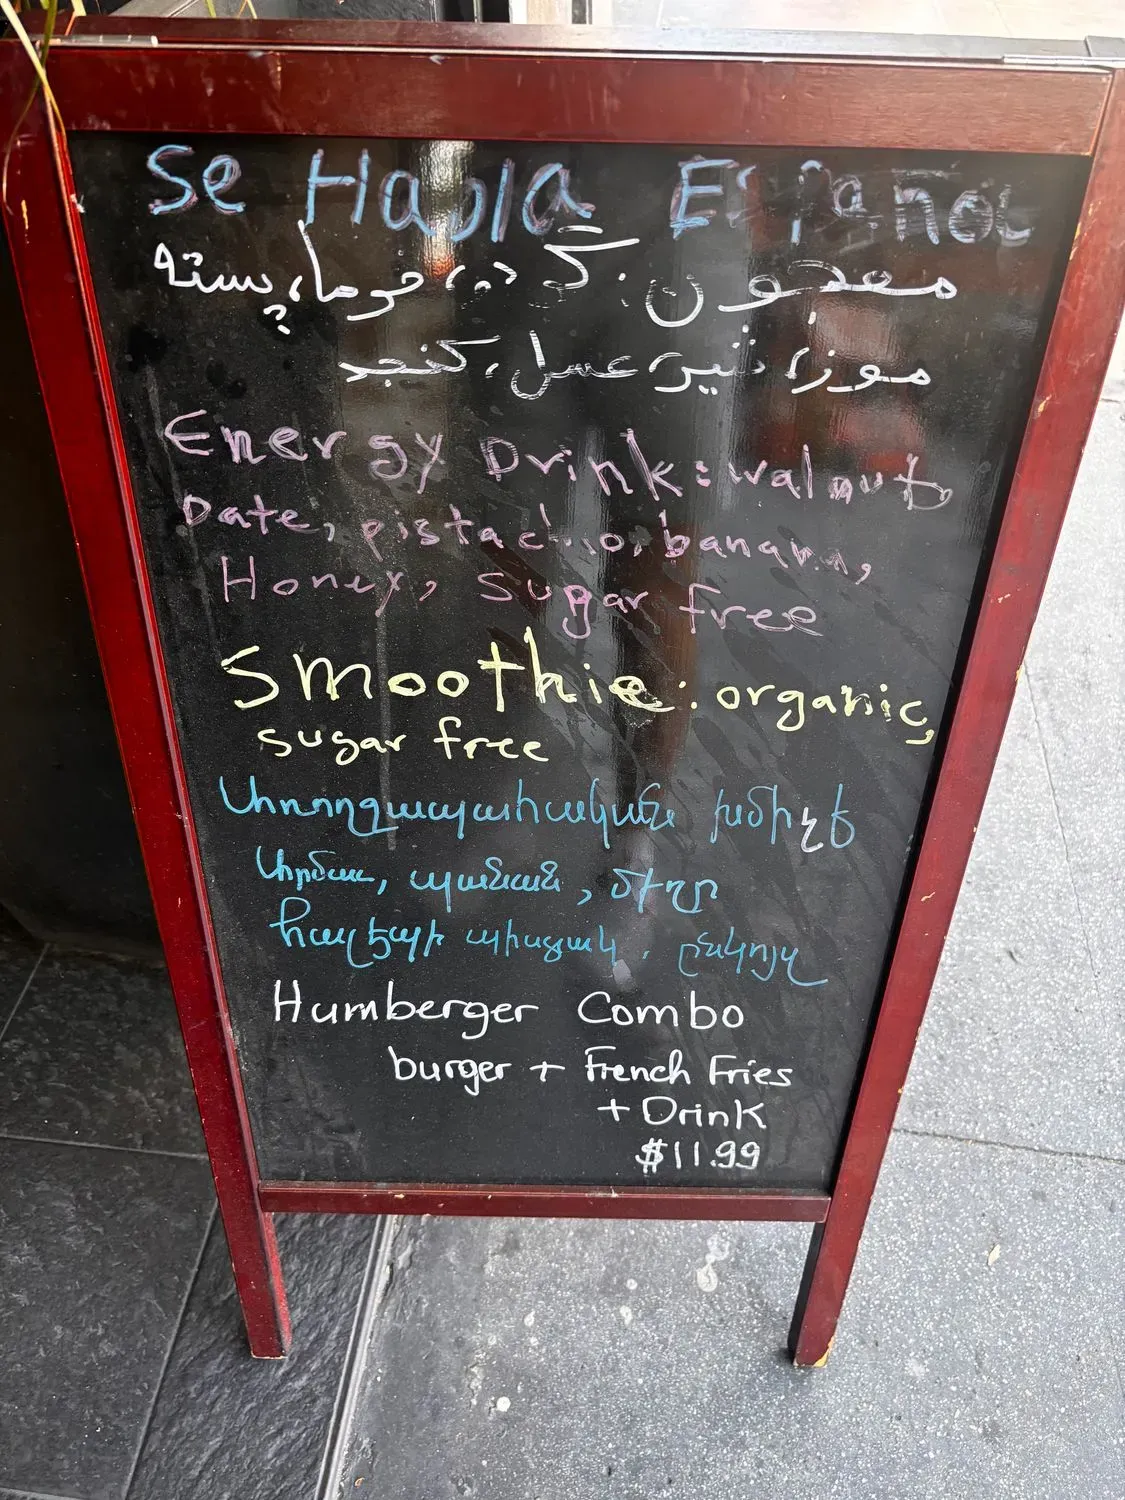 Se Habla Español
معجون: گردو، خرما، پسته
موز، شیر، عسل، کنجد
Energy Drink: walnut,
Date, pistachio, banana,
Honey, sugar free
Smoothie: organic,
sugar free
Առողջապահական խմիչք
Արմաւ, պանան, մեղր
հալէպի պիստակ, ընկոյզ
Humberger Combo
burger + French Fries
+ Drink
$11.99